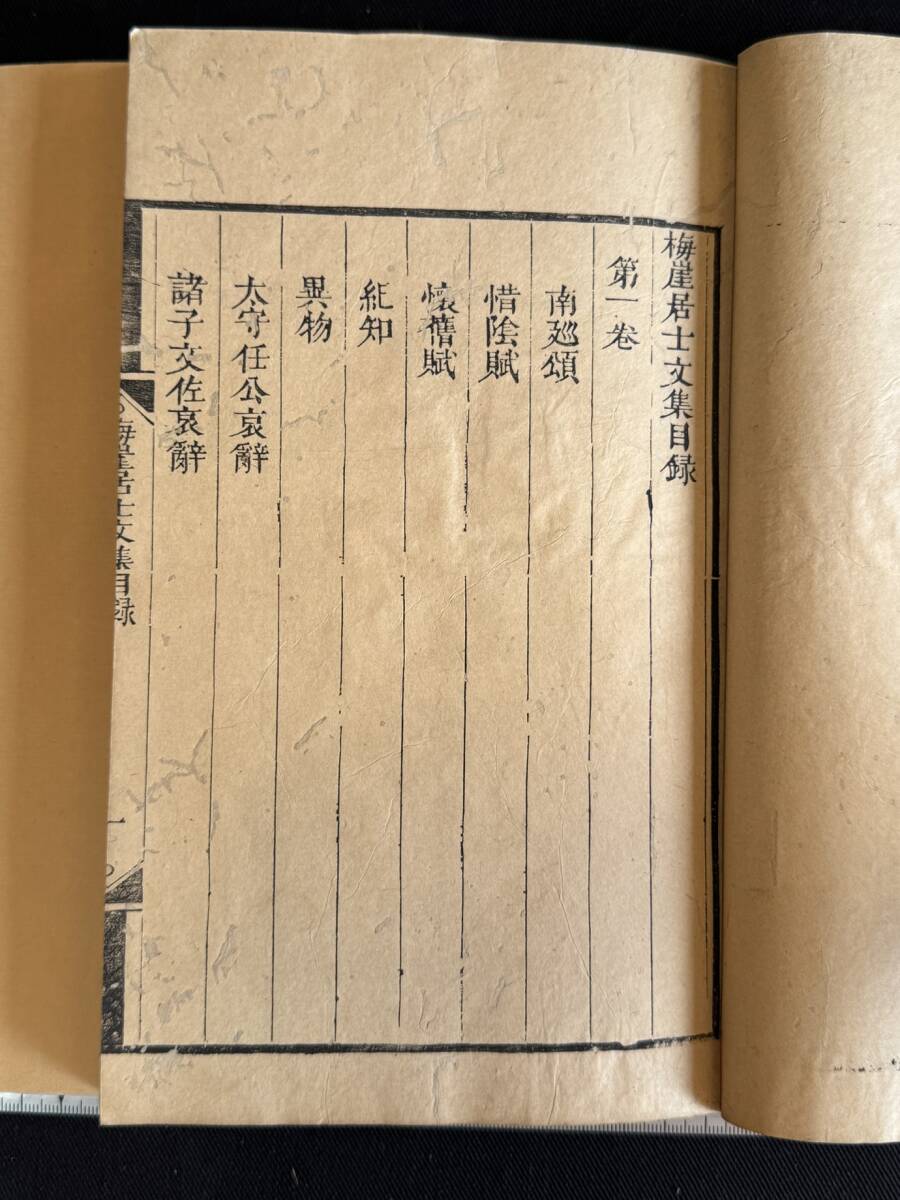 梅崖居士文集目録
第一卷
南廵頌
惜隂賦
懷舊賦
紀知
異物
太守任公哀辭
諸子文佐哀辭
梅崖居士文集目録
一